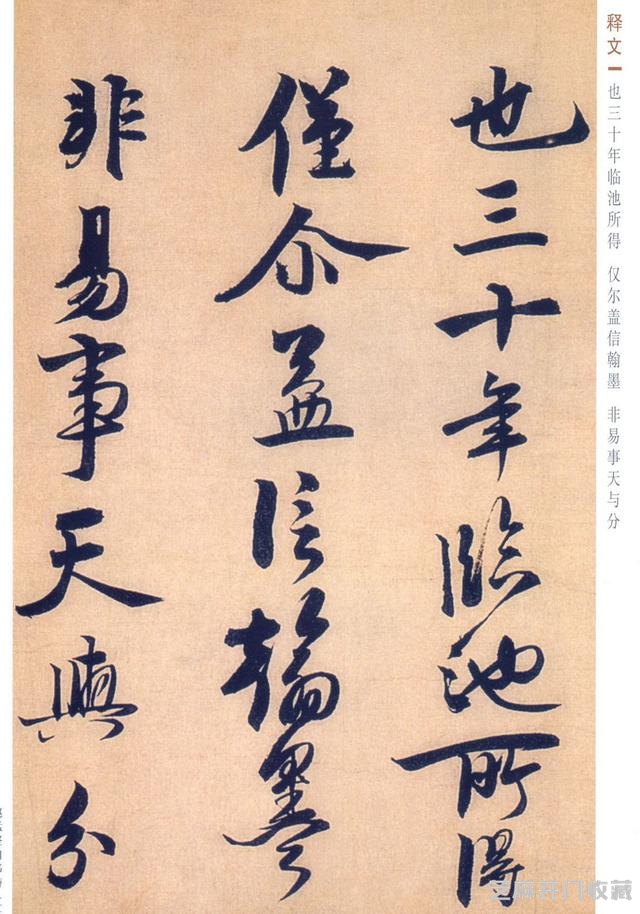 释文
也三十年临池所得 仅尔盖信翰墨 非易事天与分
也三十年臨池所得
僅尔盖信翰墨
非易事天與分